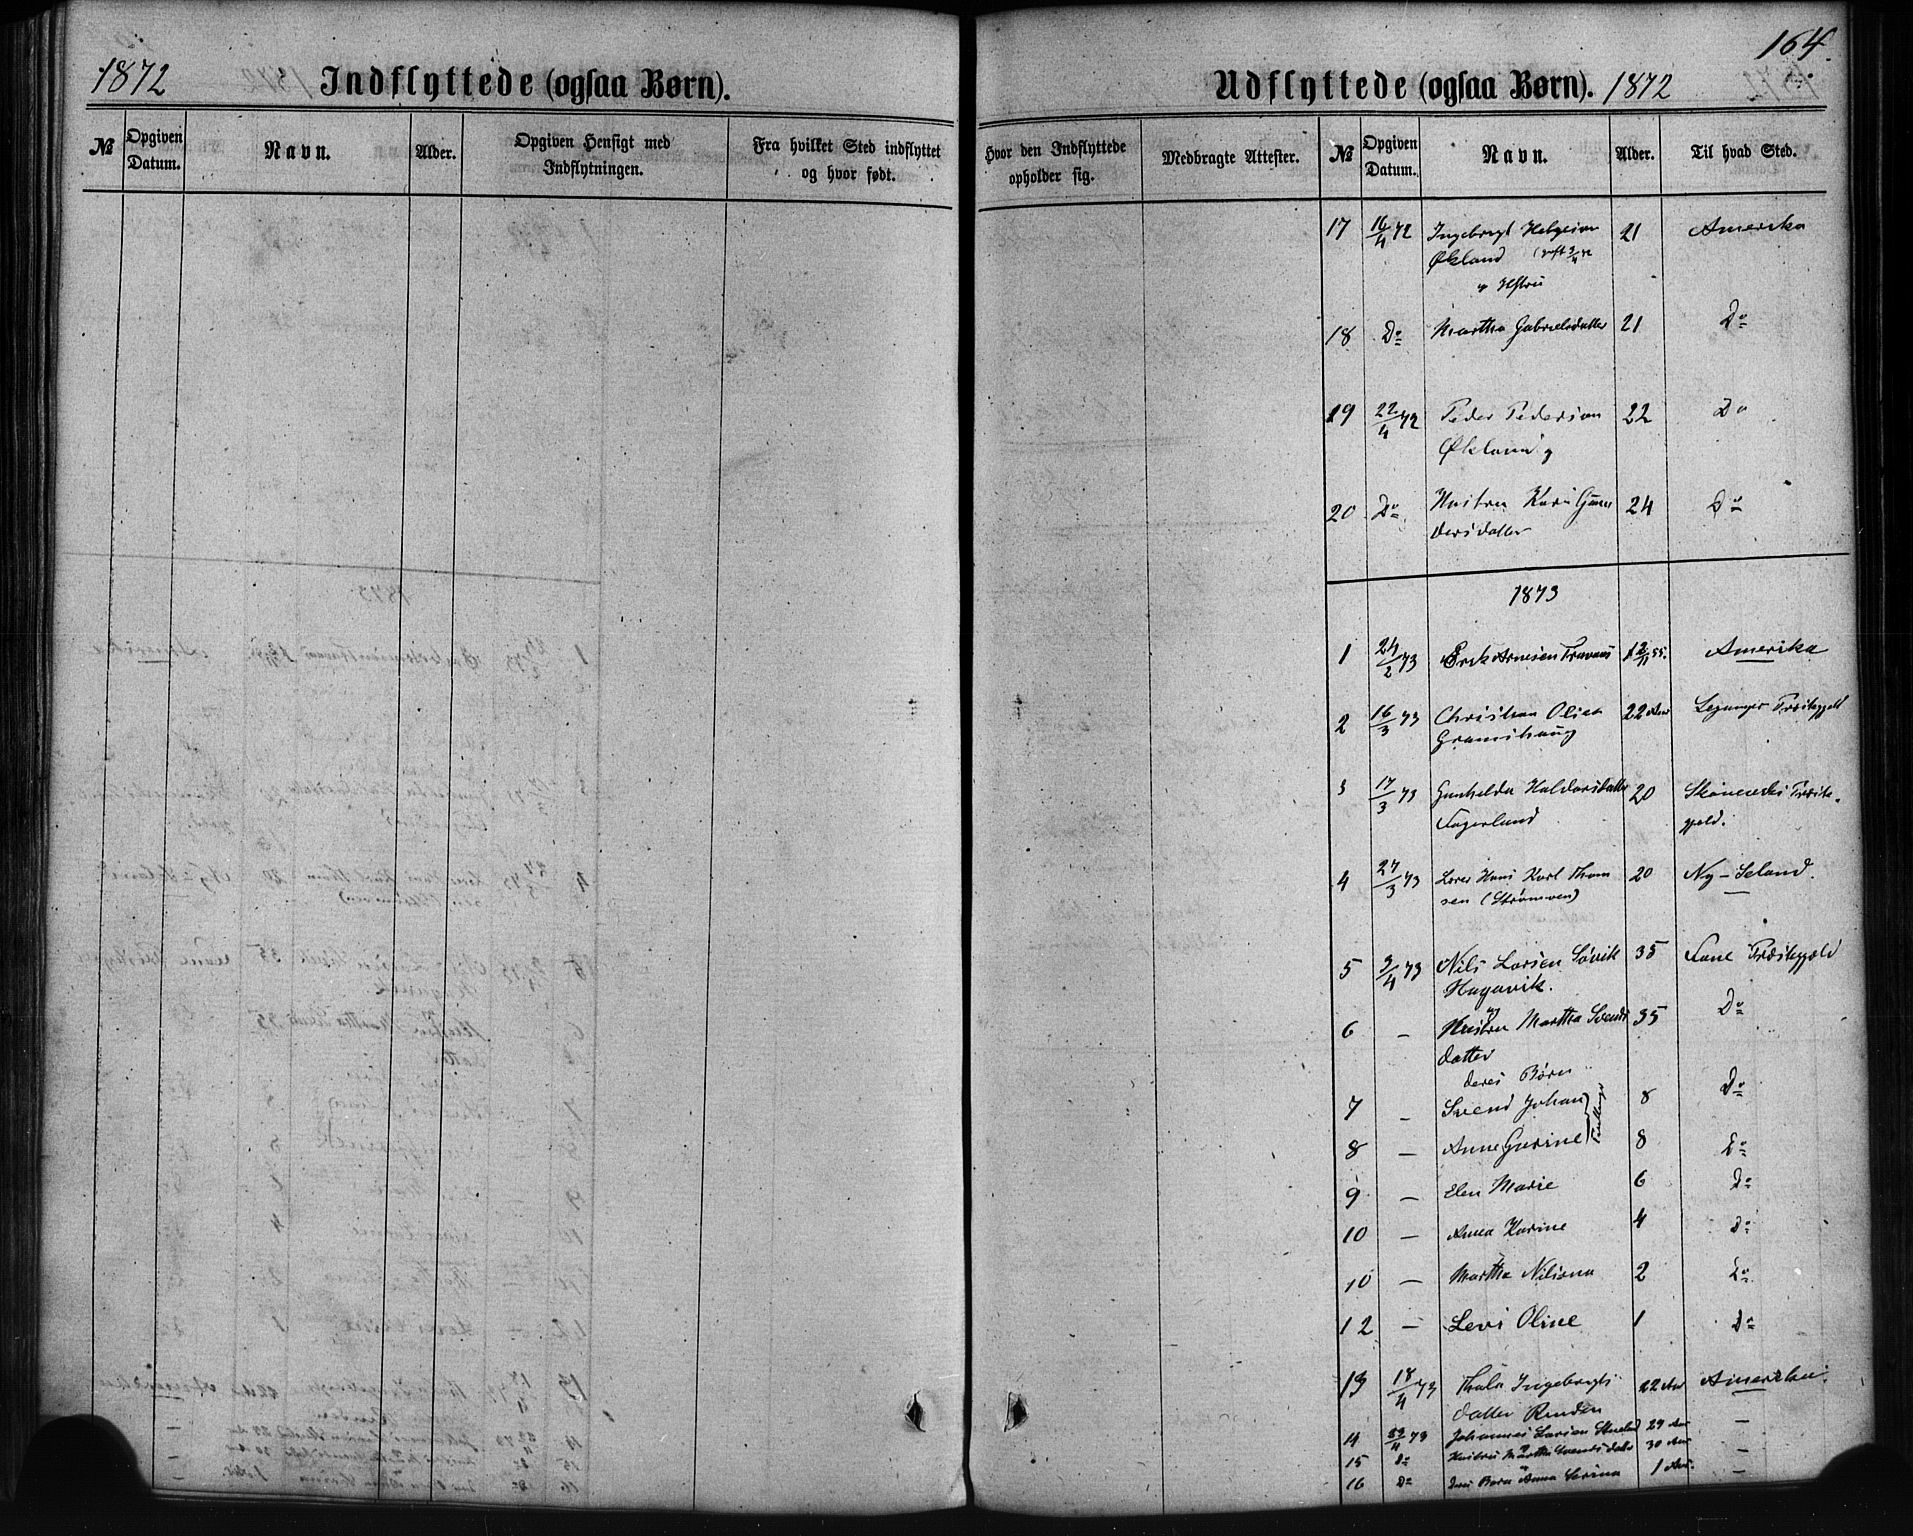 1872 Indflyttede (ogsaa Børn).
№ Opgiven Datum. Navn. Alder. Opgiven Hensigt med Indflytningen. Fra hvilket Sted indflyttet og hvor født.
164.
Udflyttede (ogsaa Børn). 1872
Hvor den Indflyttede opholder sig. Medbragte Attester. № Opgiven Datum. Navn. Alder. Til hvad Sted.
17 16/4 72 Ingebregt Helgesen 21 Amerika
Økland
18 Do Martha Gabrielsdatter 21 Do
19 22/4 72 Peder Pedersen 22 Do
Økland og
20 Do Hustru Kari Gun 24 Do
dersdatter
1873
1 24/2 73 Erik Arnesen 12/11 55. Amerika
2 16/3 73 Christian Olsen 22 Aar Præstegjeld
Gramshaug
3 17/3 73 Gunhilda Haldorsdatter 20 Skonevik Præste-
Fagerland gjeld.
4 27/3 73 Hans Karl Thom 20 Ny-Seland.
sen (Strømoen)
5 3/4 73 Nils Larsen Søvik 35 Fane Præstegjeld
Hagavik.
6 – Hustru Martha Svends 35 Do
datter
deres Børn
7 – Svend Johan 8 Do
8 – Anne Gurine 8 Do
Tvillinger
9 – Elen Marie 6 Do
10 – Anna Karine 4 Do
10 – Martha Nilsina 2 Do
12 – Levi Oline 1 Do
13 18/4 73 Ingebregts 22 Aar Amerika.
datter Rinden
14 Johannes Larsen 29 Aar –
15 Do Hustru Martha Svendsdatter 30 Aar –
16 Do Barn Anna Serina 1 Aar. –